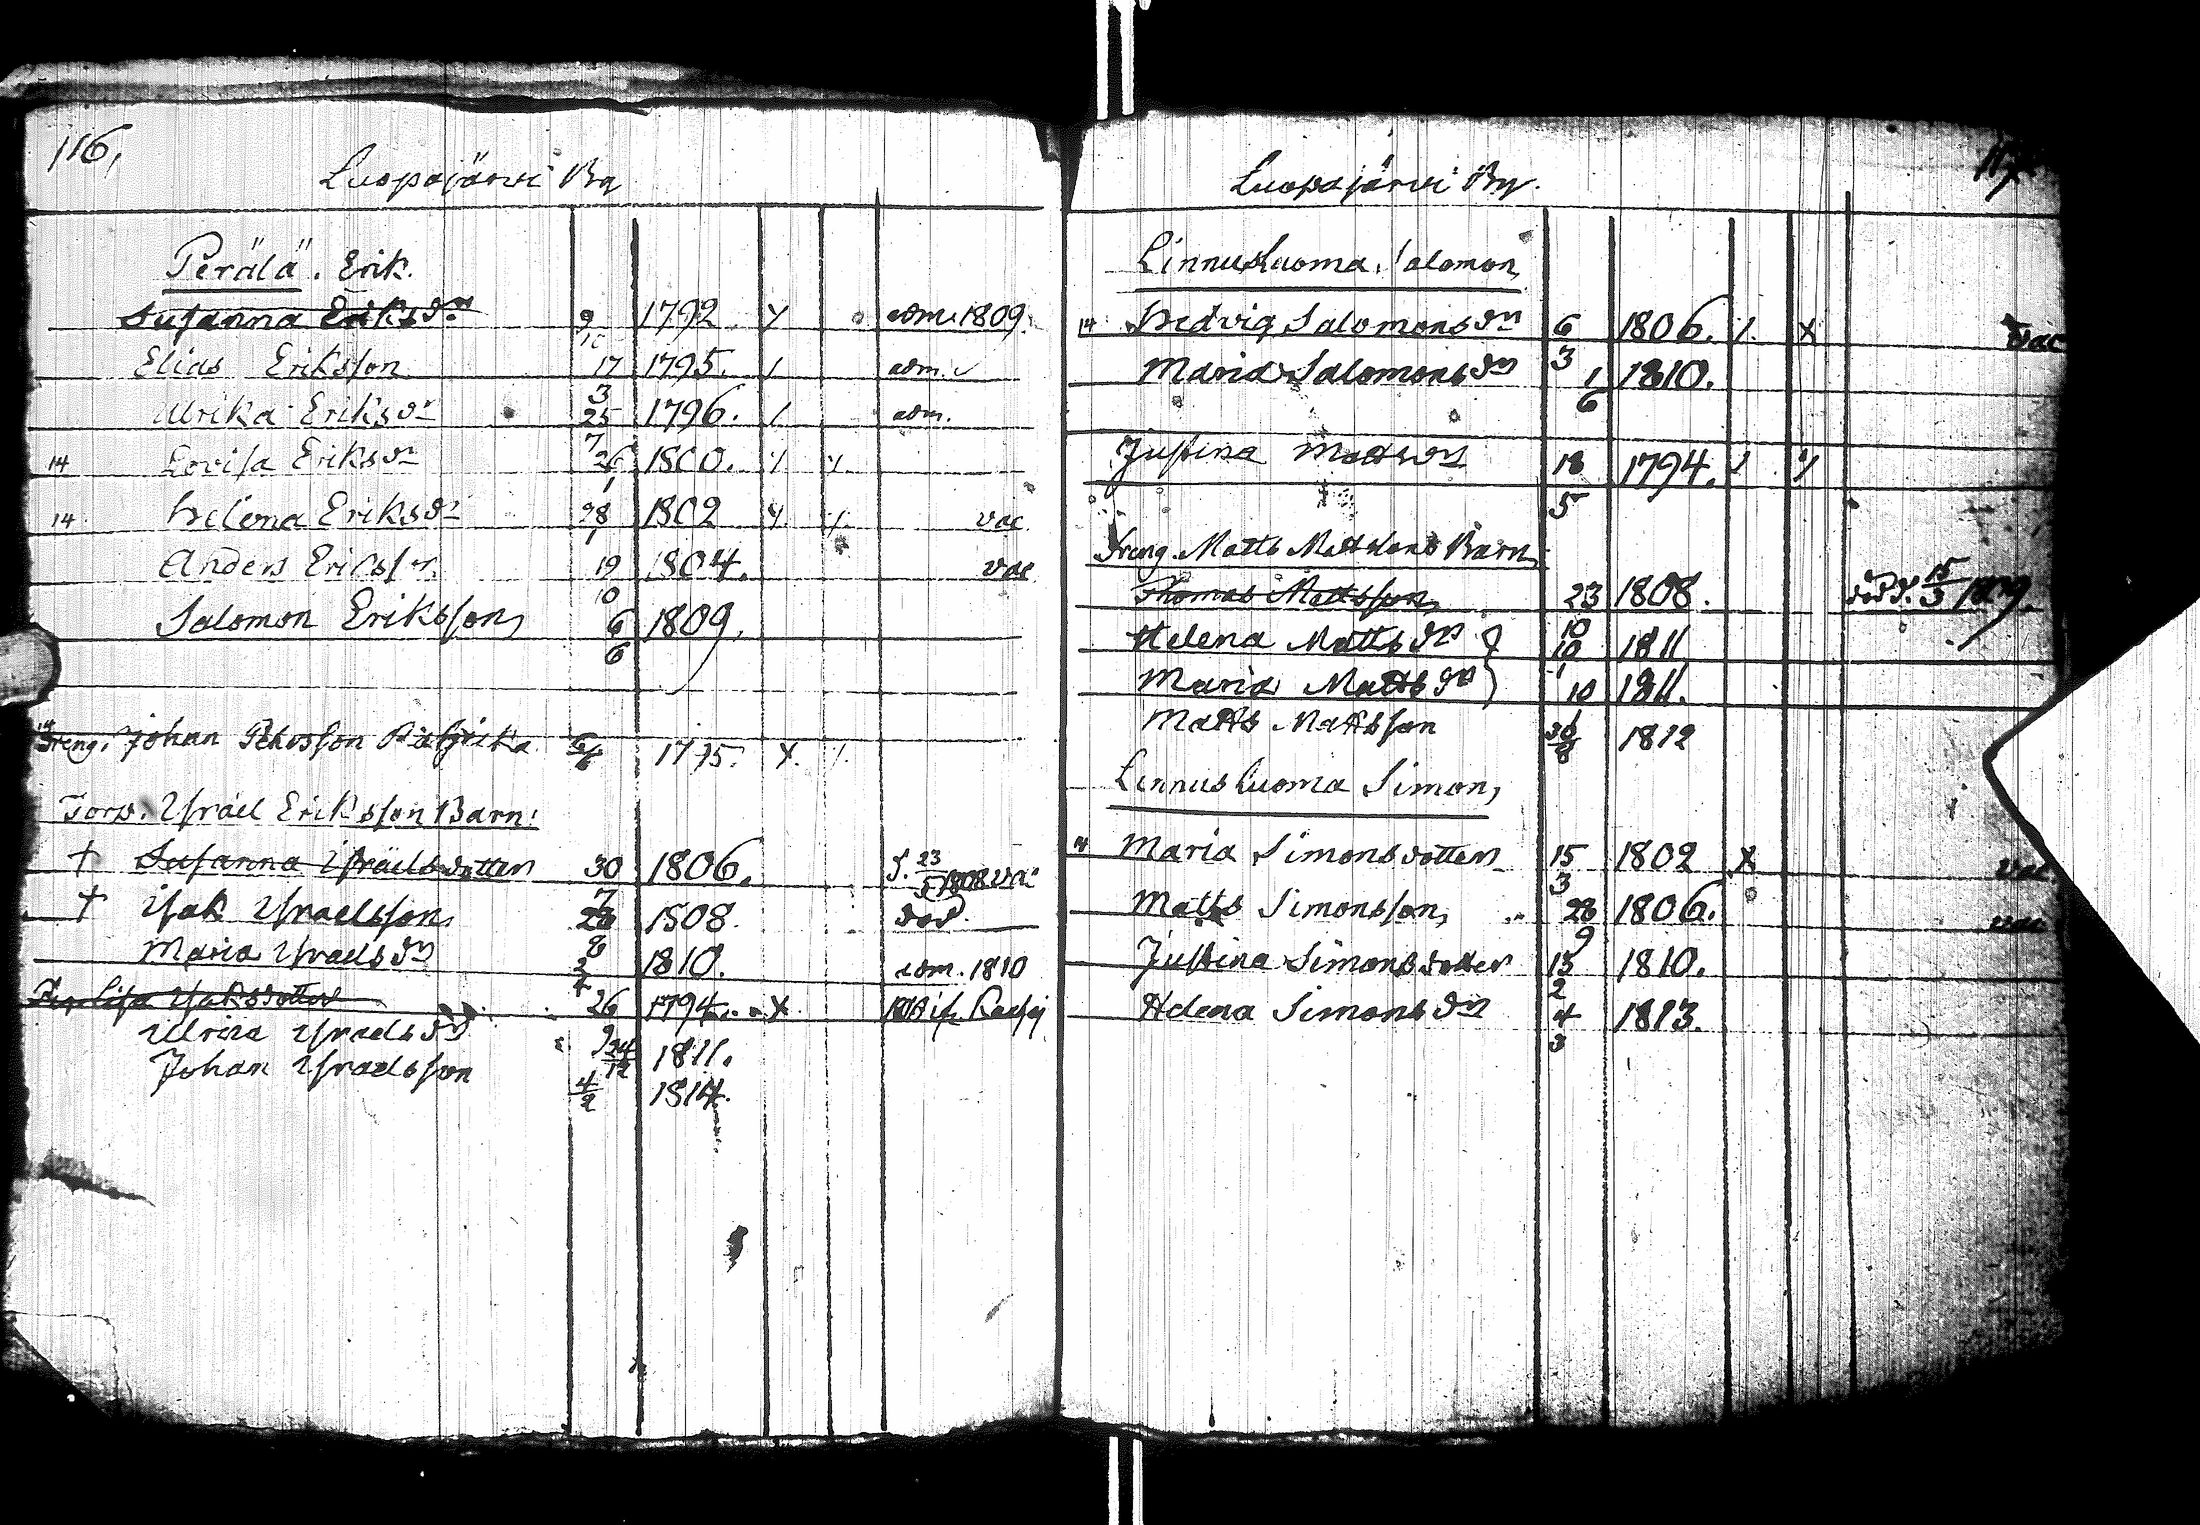 116.
Luopajärvi By
Perälä. Erik.
Susanna Eriksdr 9/10 1792 adm. 1809.
Elias Eriksson 17/3 1795. adm.
Ulrika Eriksdr 25/7 1796. adm.
14 Lovisa Eriksdr 26/1 1800.
14 Helena Eriksdr 28/1 1802 vac.
Anders Eriksson 19/10 1804. vac
Salomon Eriksson, 6/6 1809.
14
Dreng. Johan 1795. X.
Torp. Israel Eriksson Barn:
† Susanna Israelsdotter 30/7 1806. d. 23/5 1808 vac
† Isak Israelsson, 28/8 1808. död.
Maria Israelsdr 2/4 1810. adm. 1810
Isaksdotter 26/9 1794. X
Ulrica Israelsdr 24/12 1811.
Johan Israelsson 4/2 1814.
117.
Luopajärvi By.
Linnusluoma. Salomon,
14 Hedvig Salomonsdr 6/3 1806. X vac
Maria Salomonsdr 1/6 1810.
Justina Mattsdr 18/5 1794.
Dreng. Matts Mattsons Barn,
Thomas Mattsson, 23/10 1808. död d. 15/3 1809.
Helena Mattsdr } 10/1 1811
Maria Mattsdr } 10 1811.
Matts Mattsson 1812
Linnusluoma Simon,
14 Maria Simonsdotter 15/3 1802 X vac
Matts Simonsson, 28/9 1806. vac
Justina Simonsdotter 13/2 1810.
Helena Simonsdr 4/3 1813.